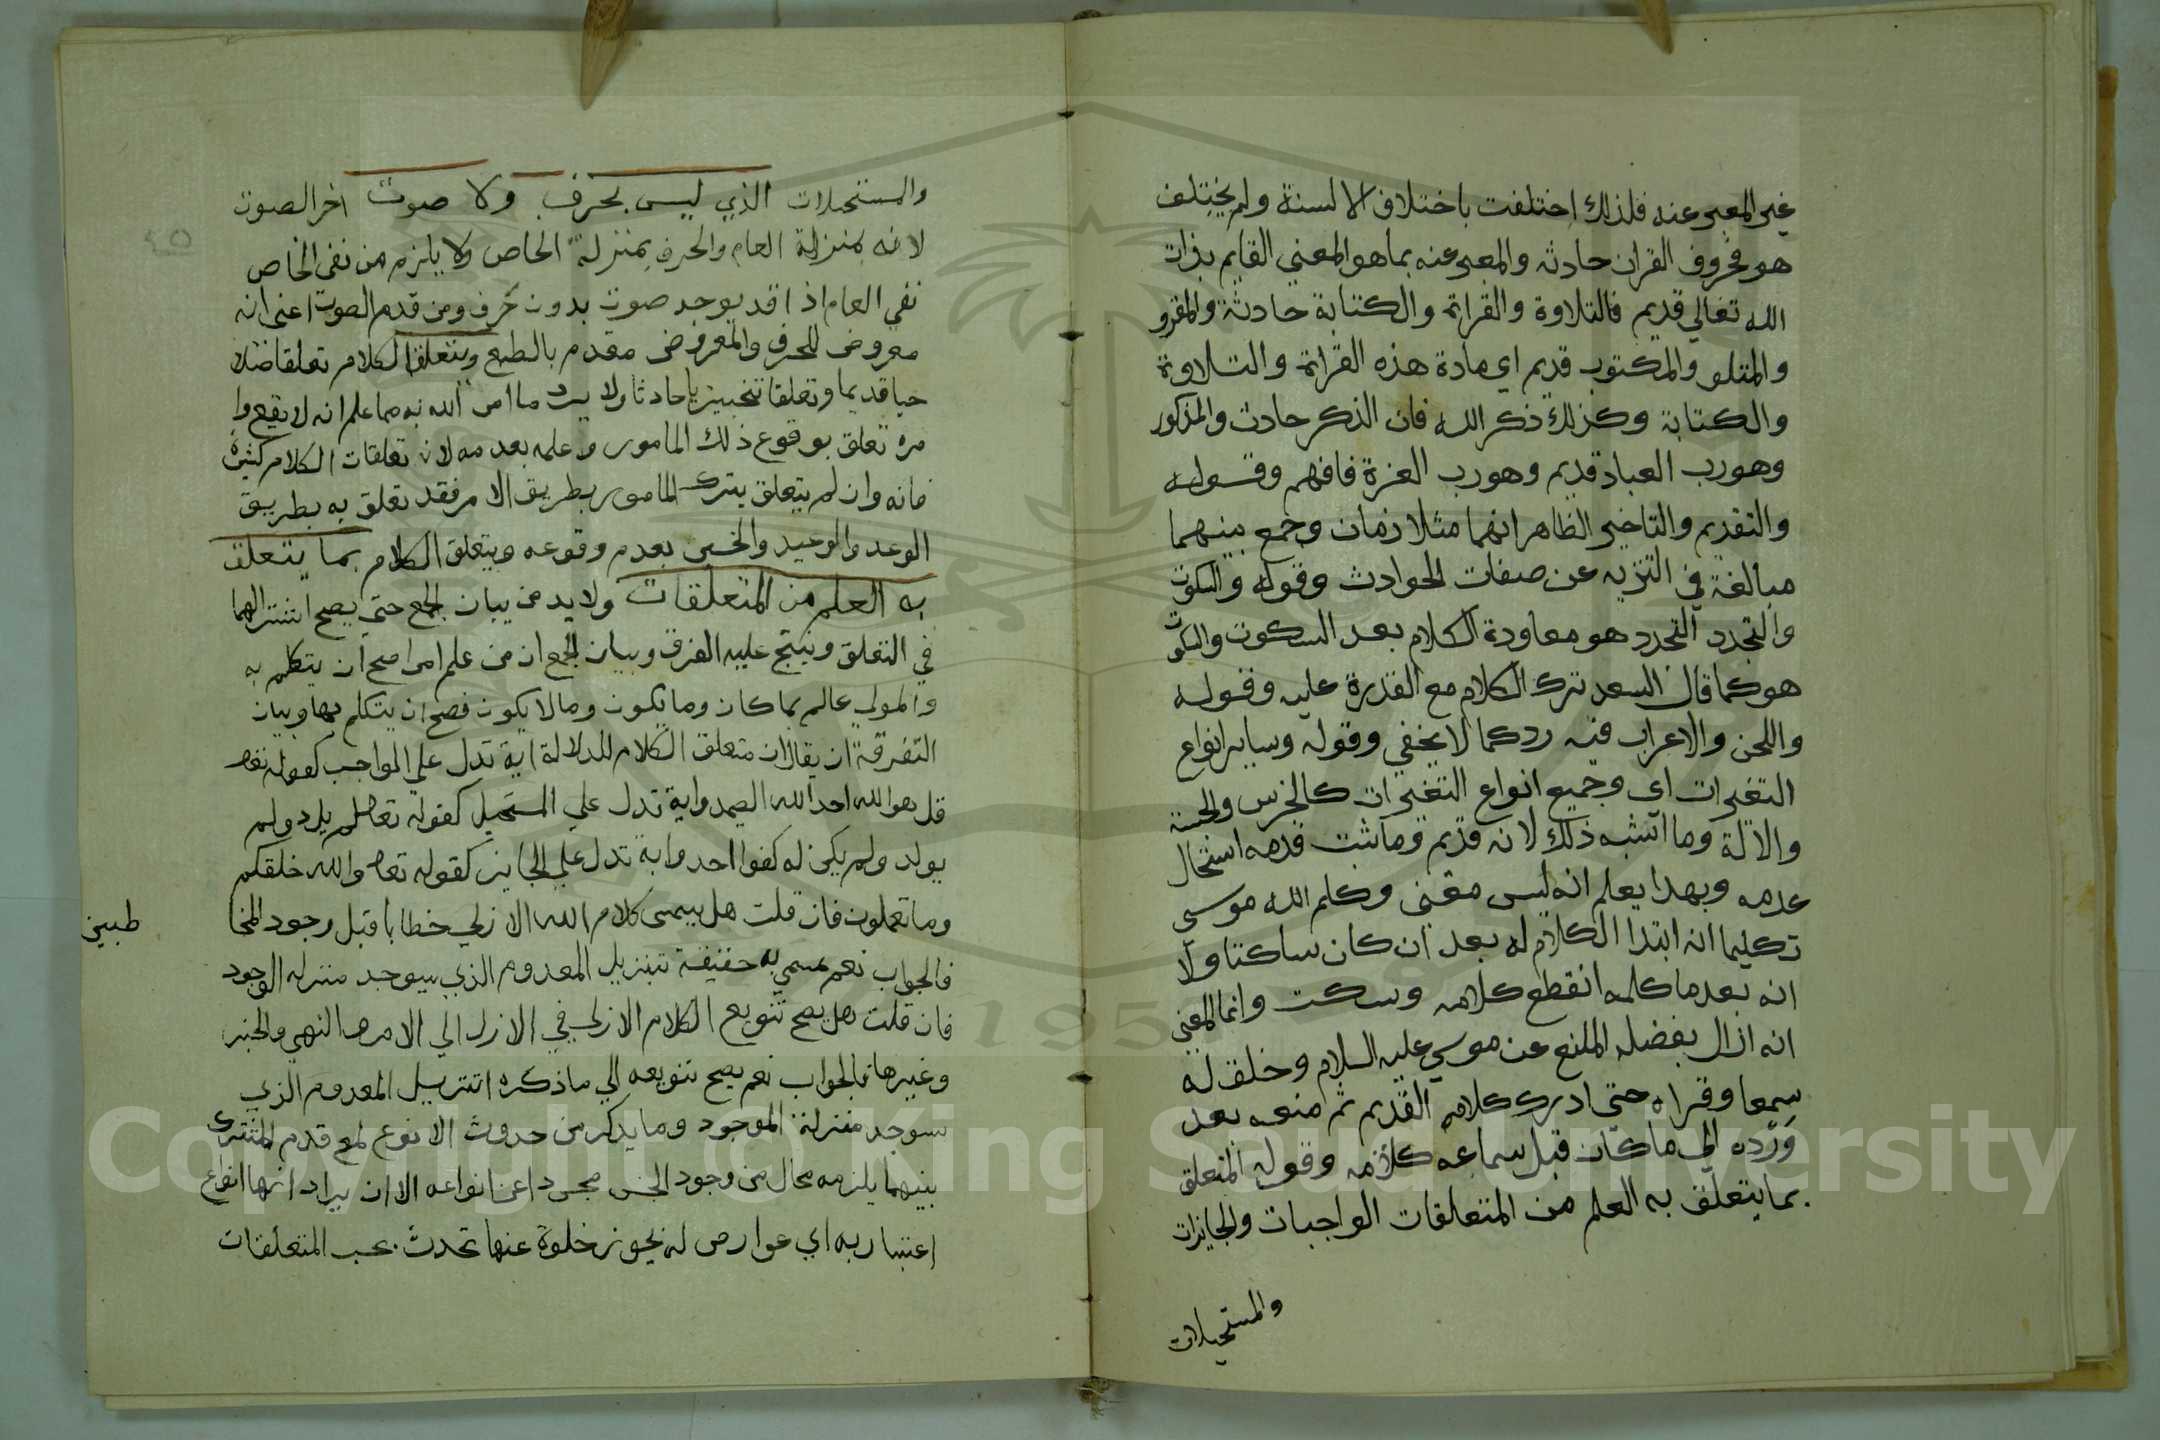 غير المعبر عنه فلذلك اختلفت باختلاف الالسنة ولم يختلف
هو فحروف القران حادثه والمعبر عنه بما هو المعني القايم بذات
الله تعالي قديم فالتلاوة والقراة والكتابة حادثة والمقرو
والمتلو والمكتوب قديم اي مادة هذه القراة والتلاوة
والكتابة وكذلك ذكر الله فان الذكر حادث والمذكور
وهو رب العباد قديم وهو رب العزة فافهم وقوله
والتقديم والتاخير الظاهر انهما مثلا زمان وجمع بينهما
مبالغة في التنزيه عن صفات الحوادث وقوله والسكوت
والتجدد التجدد هو معاودة الكلام بعد السكوت والسكوت
هو كما قال السعد ترك الكلام مع القدرة عليه وقوله
واللحن والاعراب فيه رد كما لا يخفي وقوله وساير انواع
التغيرات اي وجميع انواع التغيرات كالخرس والحبسة
والالة وما اشبه ذلك لانه قديم وما ثبت قدمه استحال
عدمه وبهذا يعلم انه ليس معنى وكلم الله موسى
تكليما انه ابتدا الكلام له بعد ان كان ساكتا ولا
انه بعد ما كلمه انقطع كلامه وسكت وانما المعني
انه ازال بفضله المانع عن موسي عليه السلام وخلق له
سمعا وقراه حتى ادرك كلامه القديم ثم منعه بعد
ورده الي ما كان قبل سماعه كلامه وقوله المتعلق
بما يتعلق به العلم من المتعلقات الواجبات والجايزات
والمستحيلات
والمستحيلات الذي ليس بحرف ولا صوت اخر الصوت
لانه بمنزلة العام والحرف بمنزلة الخاص ولا يلزم من نفي الخاص
نفي العام اذ قد يوجد صوت بدون حرف ومن قدم الصوت اعني انه
معروض للحرف والمعروض مقدم بالطبع ويتعلق الكلام تعلقا صلا
حيا قديما وتعلقا تنجيزيا حادثا ولا يرد ما امر الله به مما علم انه لا يقع وا
مره تعلق بوقوع ذلك المامور وعلمه بعدمه لان تعلقات الكلام كثيرة
فانه وان لم يتعلق بترك المامور بطريق الامر فقد تعلق به بطريق
الوعد والوعيد والخبر بعدم وقوعه ويتعلق الكلام بما يتعلق
به العلم من المتعلقات ولا بد من بيان الجمع حتى يصح اشتراكهما
في التعلق وينتج عليه الفرق وبيان الجمع ان من علم امرا صح ان يتكلم به
والمولي عالم بما كان وما يكون وما لا يكون فصح ان يتكلم بها وبيان
التفرقة ان يقال ان متعلق الكلام للدلالة اية تدل علي الواجب كقوله تعا
قل هو الله احد الله الصمد واية تدل علي المستحيل كقوله تعا لم يلد ولم
يولد ولم يكن له كفوا احد واية تدل علي الجايز كقوله تعا والله خلقكم
وما تعملون فان قلت هل يسمى كلام الله الازلي خطابا قبل وجود المخا
طبين
فالجواب نعم يسمي به حقيقة بتنزيل المعدوم الذي سيوجد منزلة الوجود
فان قلت هل يصح تنويع الكلام الازلي في الازل الي الامر والنهي والخبر
وغيرها فالجواب نعم يصح تنويعه الي ما ذكره التنزيل المعدوم الذي
سيوجد منزلة الموجود وما يذكر من حدوث الانوع لمع قدم المشترك
بينهما يلزمه محال من وجود الجنس مجردا عن انواعه الا ان يراد انها انواع
اعتبارية اي عوارض له يجوز خلوه عنها تحدث بحسب المتعلقات
٤٥
Copyright © King Saud University
1957